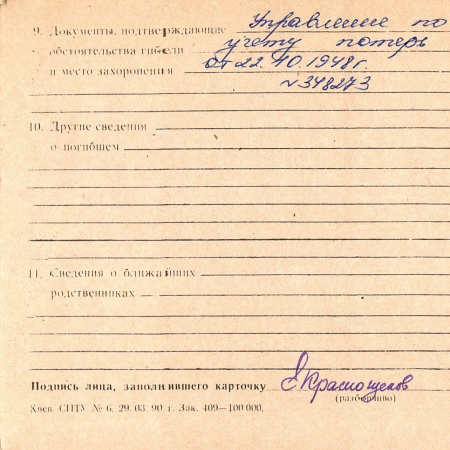 9. Документы, подтверждающие Управление по
обстоятельства гибели учету потерь
и место захоронения от 22.10.1948г.
№348273
10. Другие сведения
о погибшем
11. Сведения о ближайших
родственниках
Подпись лица, заполнившего карточку Краснощеков
(разборчиво)
Киев. СПТУ № 6, 29. 03. 90 г. Зак. 409—100 000.